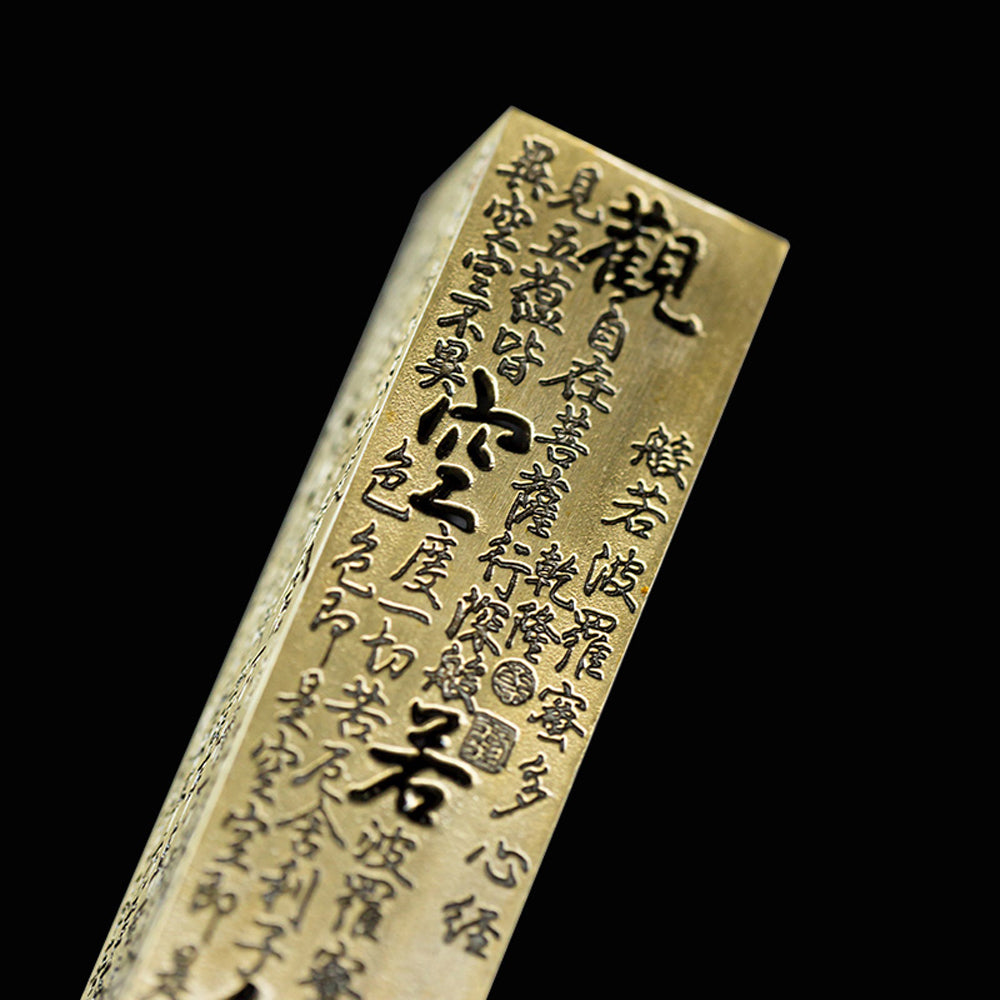 般若波羅蜜多心経
乾隆
觀自在菩薩行深般若波羅蜜
見五蘊皆空度一切苦厄舍利子
異空空不異色色即是空空即是